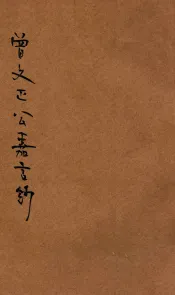 曾文正公嘉言鈔